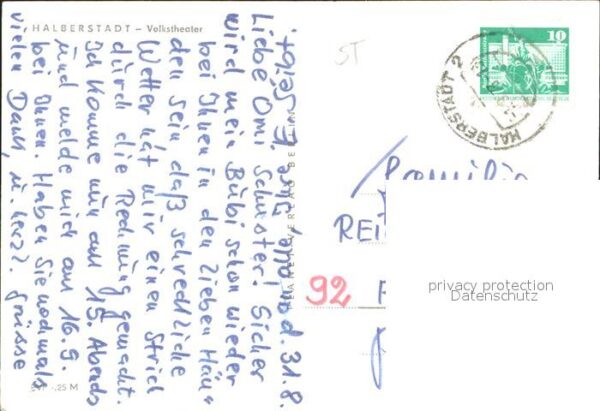 HALBERSTADT – Volkstheater
31.8.
Liebe Omi Schuster! Sicher
wird mein Bübi schon wieder
bei Ihnen in den lieben Hän-
den sein, daß schreckliche
Wetter hat mir einen Strich
durch die Rechnung gemacht.
Ich komme nun am 15. Abends
und melde mich am 16.9.
bei Ihnen. Haben Sie nochmals
vielen Dank, u. herzl. Grüsse
E. Seifert.
PLANET-VERLAG BERLIN
-,25 M
ST
10
HALBERSTADT 2
Familie
REI
92
privacy protection
Datenschutz